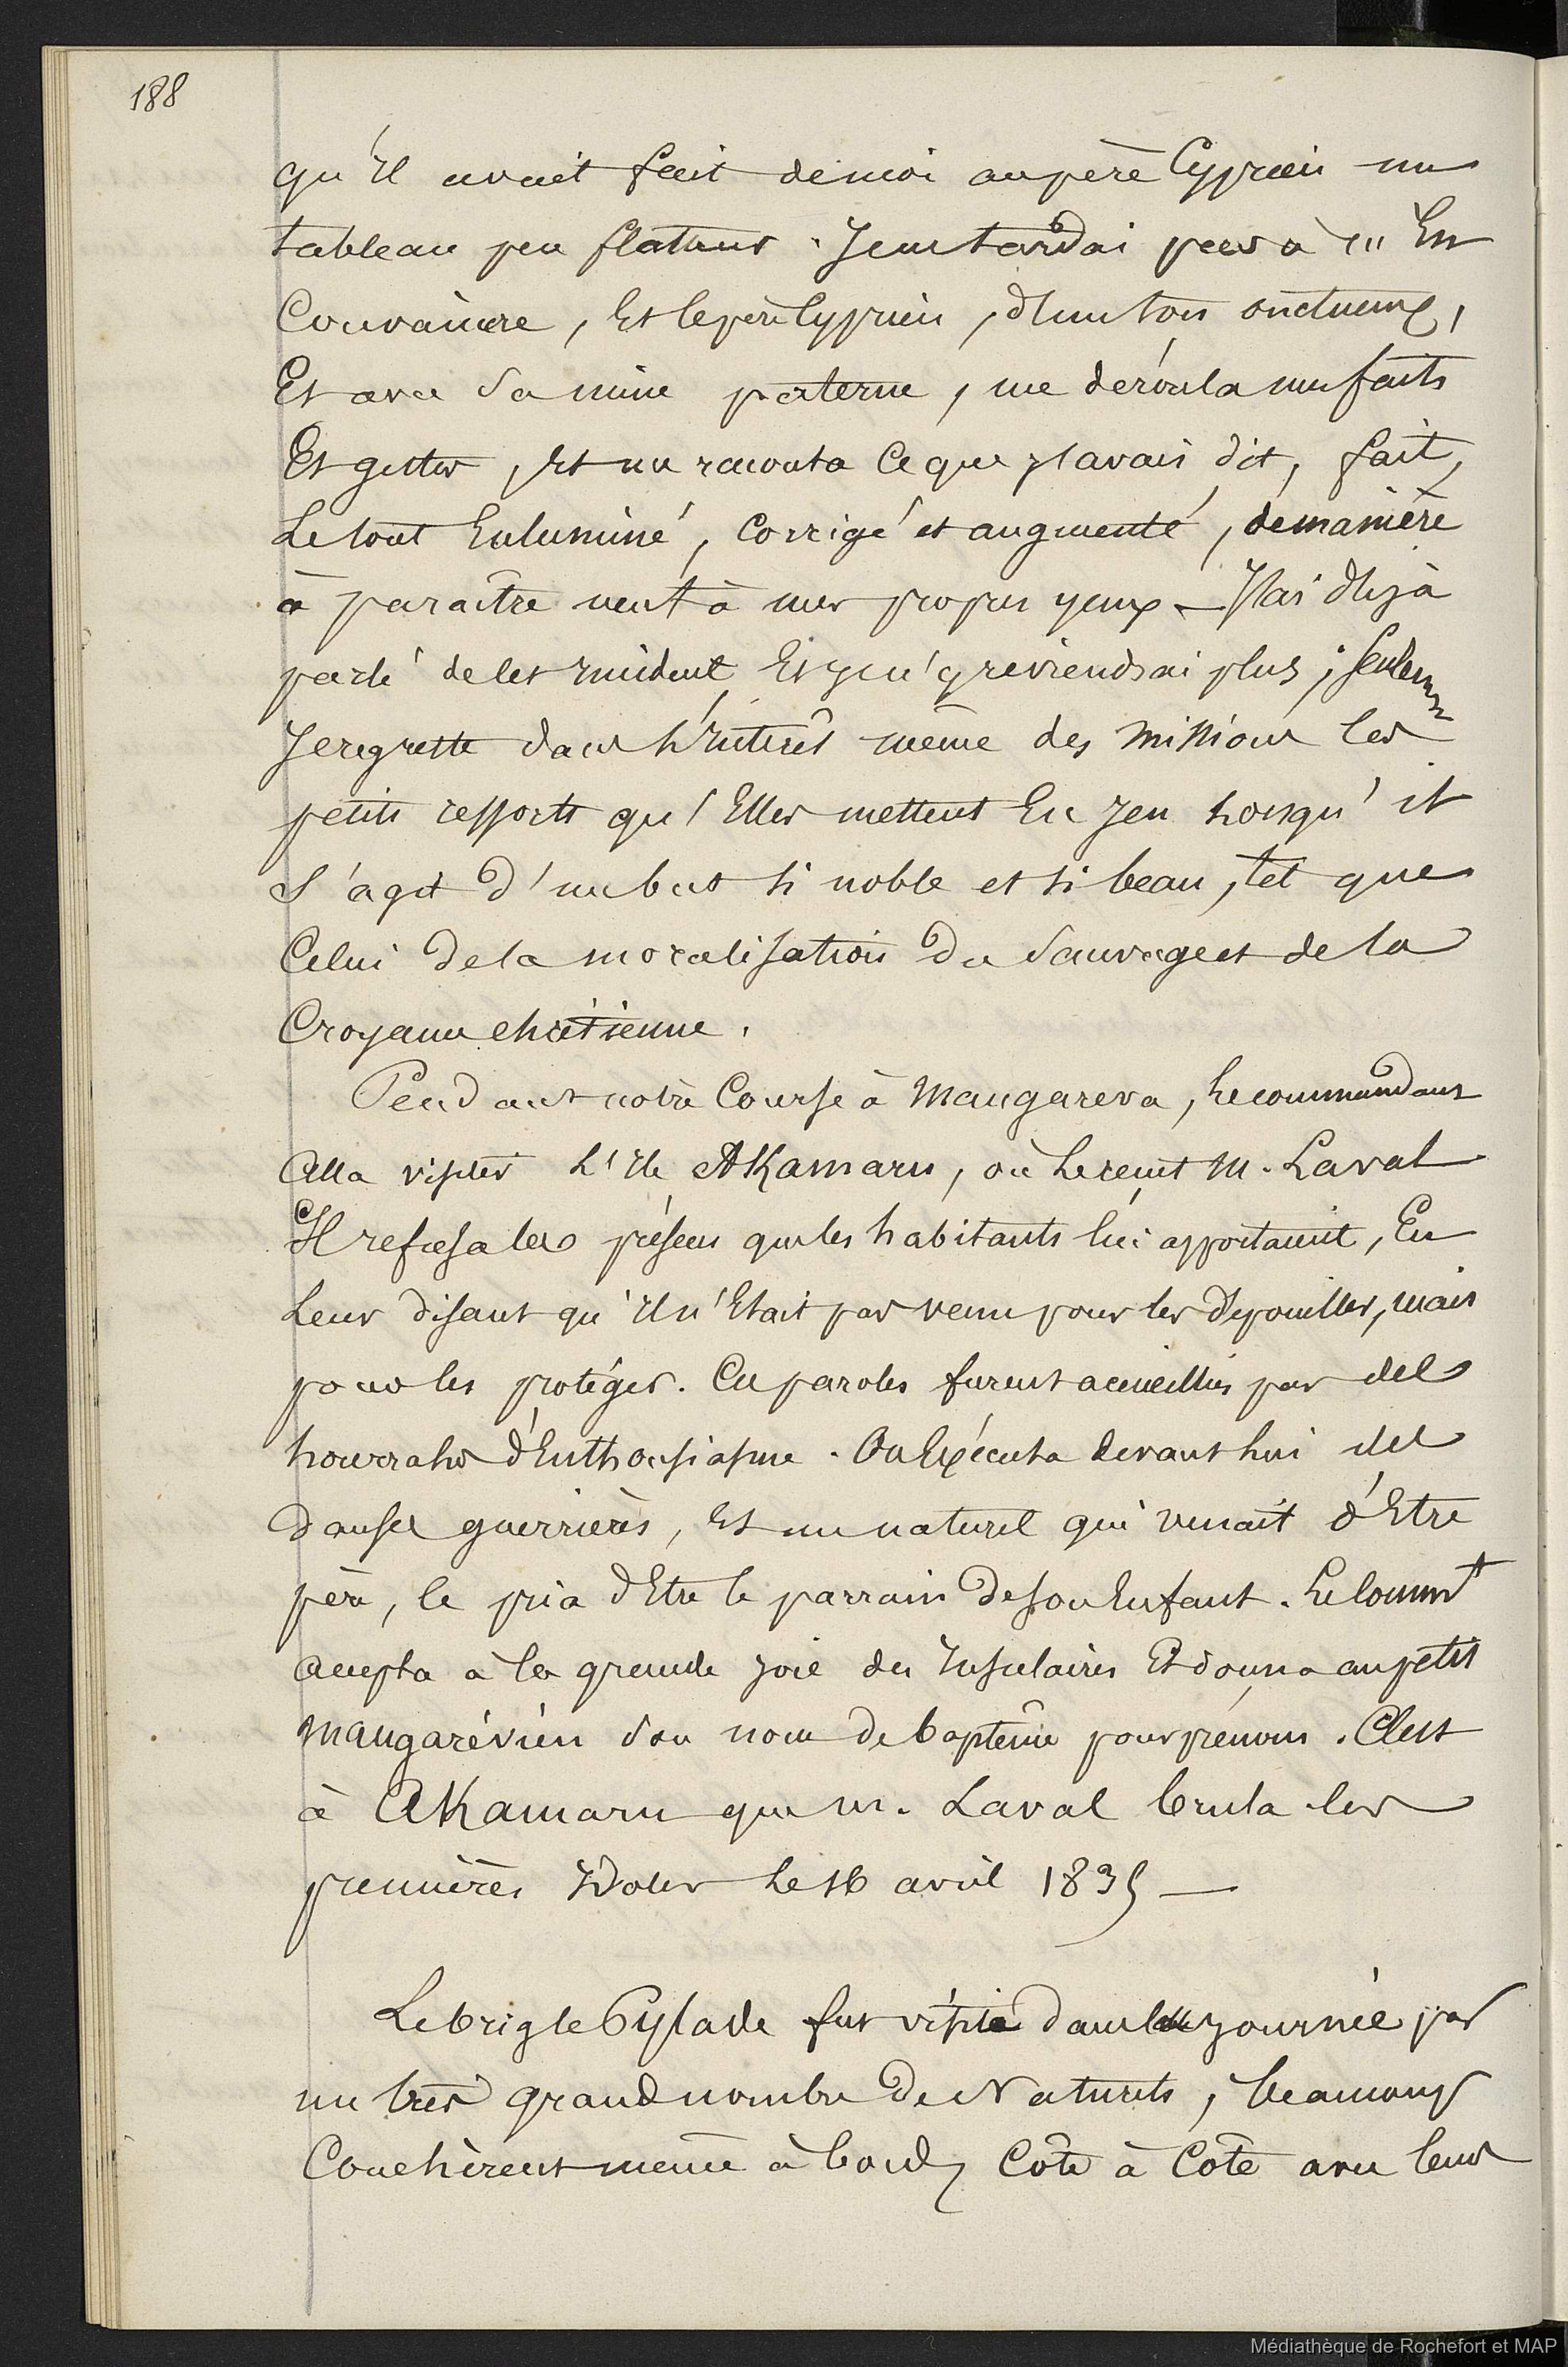 188
qu'il avait fait de moi au père Cyprien un
tableau peu flatteur. Je ne tardai pas à m'en
Convaincre, Et le père Cyprien, d'un ton onctueux,
Et avec sa mine paterne, me déroula mes faits
Et gestes, Et me raconta Ce que j'avais dit, fait,
Le tout Enluminé, Corrigé et augmenté, de manière
à paraître neuf à mes propres yeux — J'ai déjà
parlé de cet incident, Et je n'y reviendrai plus ; seulemt
Je regrette dans l'intérêt même des missions les
petits ressorts qu'Elles mettent En jeu lorsqu'il
s'agit d'un but si noble et si beau, tel que
Celui de la moralisation du sauvage et de la
Croyance chrétienne.
Pendant notre Course à Mangareva, Le commandant
Alla visiter L'île AKamaru, où Le reçut M. Laval
Il refusa les présens que les habitants lui apportaient, En
Leur disant qu'il n'Etait pas venu pour les dépouiller, mais
pour les protéger. Ces paroles furent accueillies par des
hourrahs d'Enthousiasme. On Exécuta devant lui des
danses guerrières, Et un naturel qui venait d'Etre
père, le pria d'Etre le parrain de son Enfant. Le Commt
accepta à la grande joie des Insulaires Et donna au petit
Mangarévien son nom de baptême pour prénom. C'est
à AKamaru que M. Laval brula les
premières Idoles Le 16 avril 1835 —
Le brig le Pylade fut visité dans la journée par
un très grand nombre de Naturels, beaucoup
Couchèrent même à bord, Côte à Côte avec leurs
Médiathèque de Rochefort et MAP